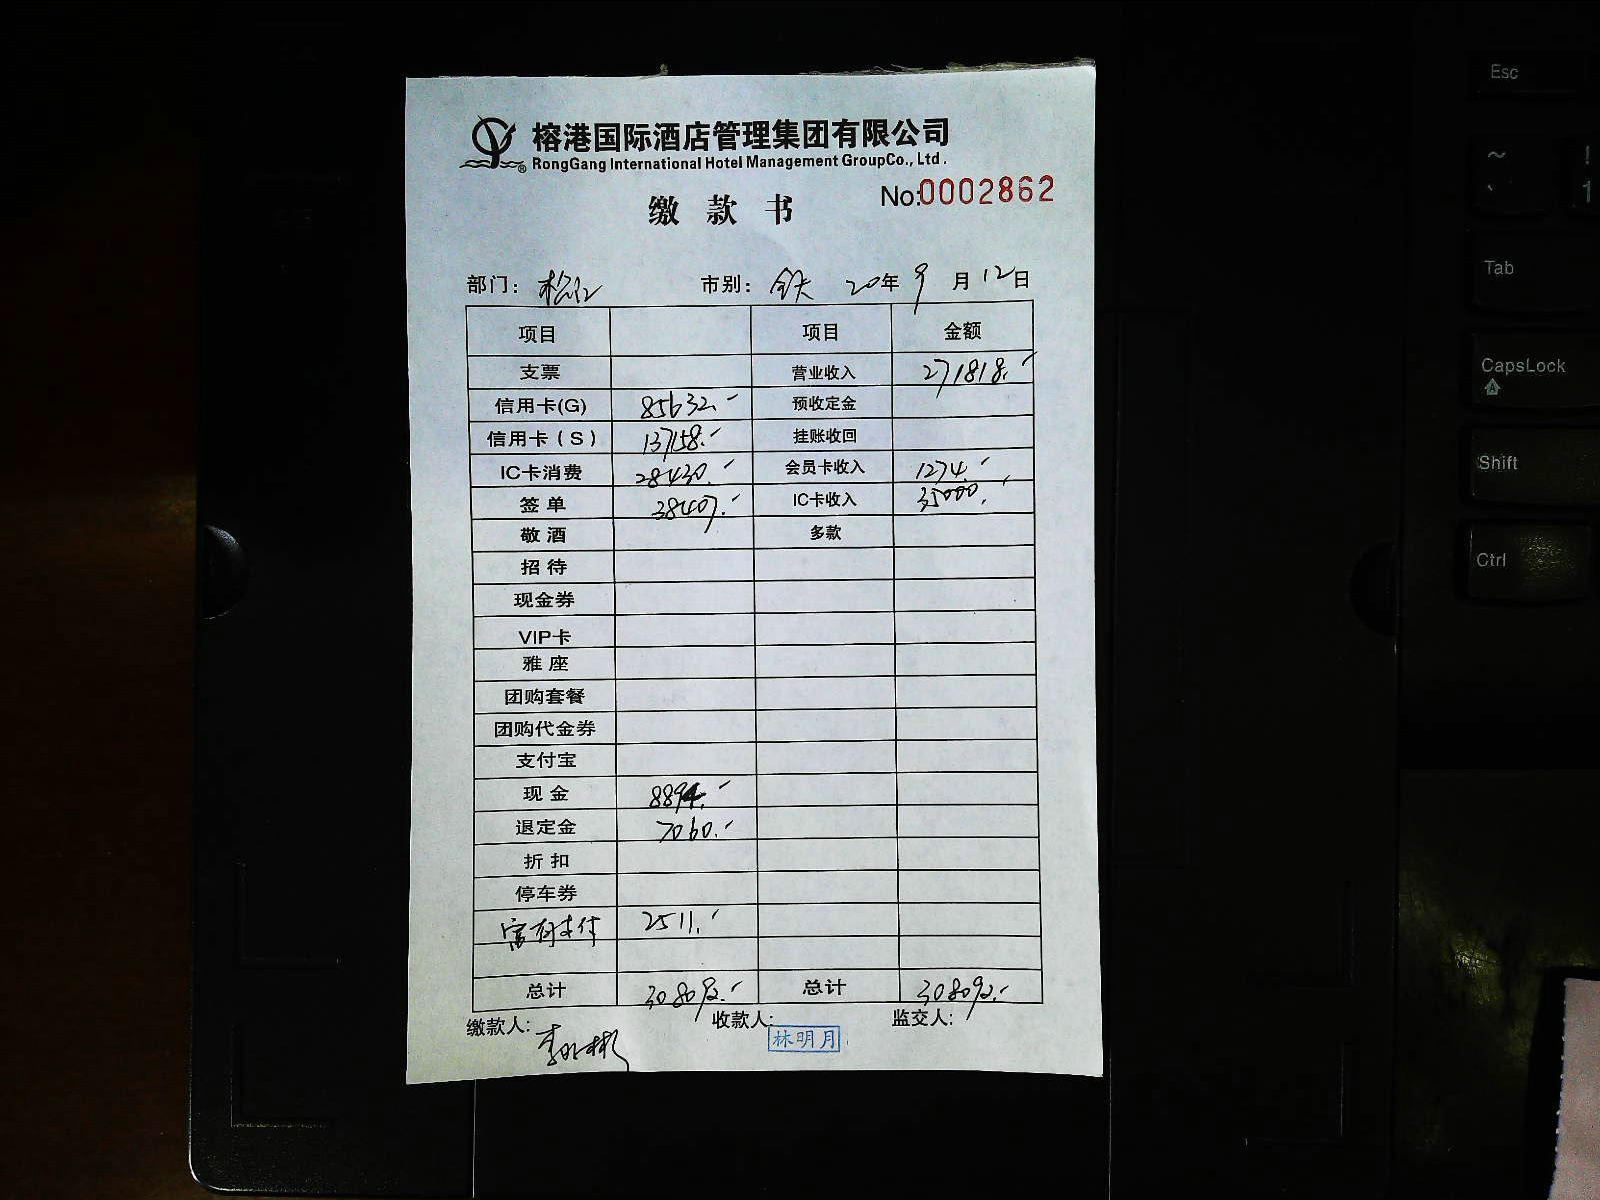 榕港国际酒店管理集团有限公司
RongGang International Hotel Management GroupCo., Ltd.
缴款书 No:0002862
部门: 市别: 20年 9月 12日
项目 项目 金额
支票 营业收入 271818.-
信用卡(G) 85632.- 预收定金
信用卡(S) 137158.- 挂账收回
IC卡消费 28430.- 会员卡收入 1274.-
签单 38407.- IC卡收入 35000.-
敬酒 多款
招待
现金券
VIP卡
雅座
团购套餐
团购代金券
支付宝
现金 8894.-
退定金 7060.-
折扣
停车券
富有支付 2511.-
总计 308092.- 总计 308092.-
缴款人: 收款人: 林明月 监交人:
Esc
~
` ! 1
Tab
CapsLock
Shift
Ctrl